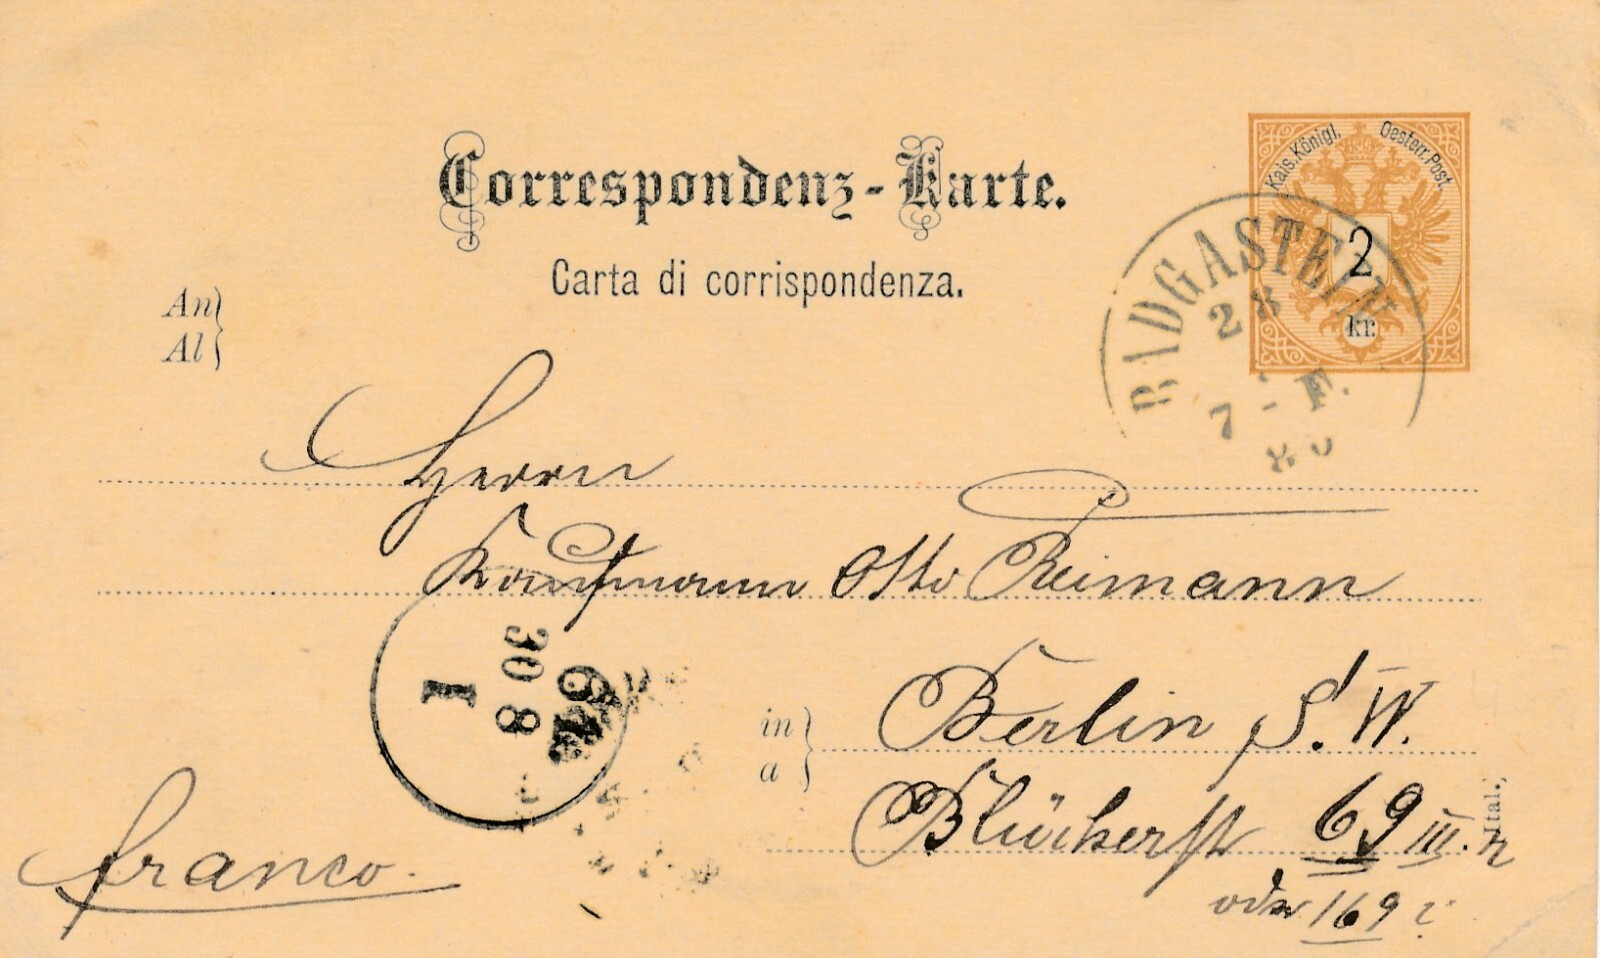 Correspondenz-Karte.
Carta di corrispondenza.
Kais. Königl. Oesterr. Post.
2
kr.
BADGASTEIN
28 8
7 - F.
An
Al
Herrn
Kaufmann Otto Reimann
in
a
Berlin S. W.
Blücherst 69 III. r
oder 169?
franco.
30 8
I
(Ital.)